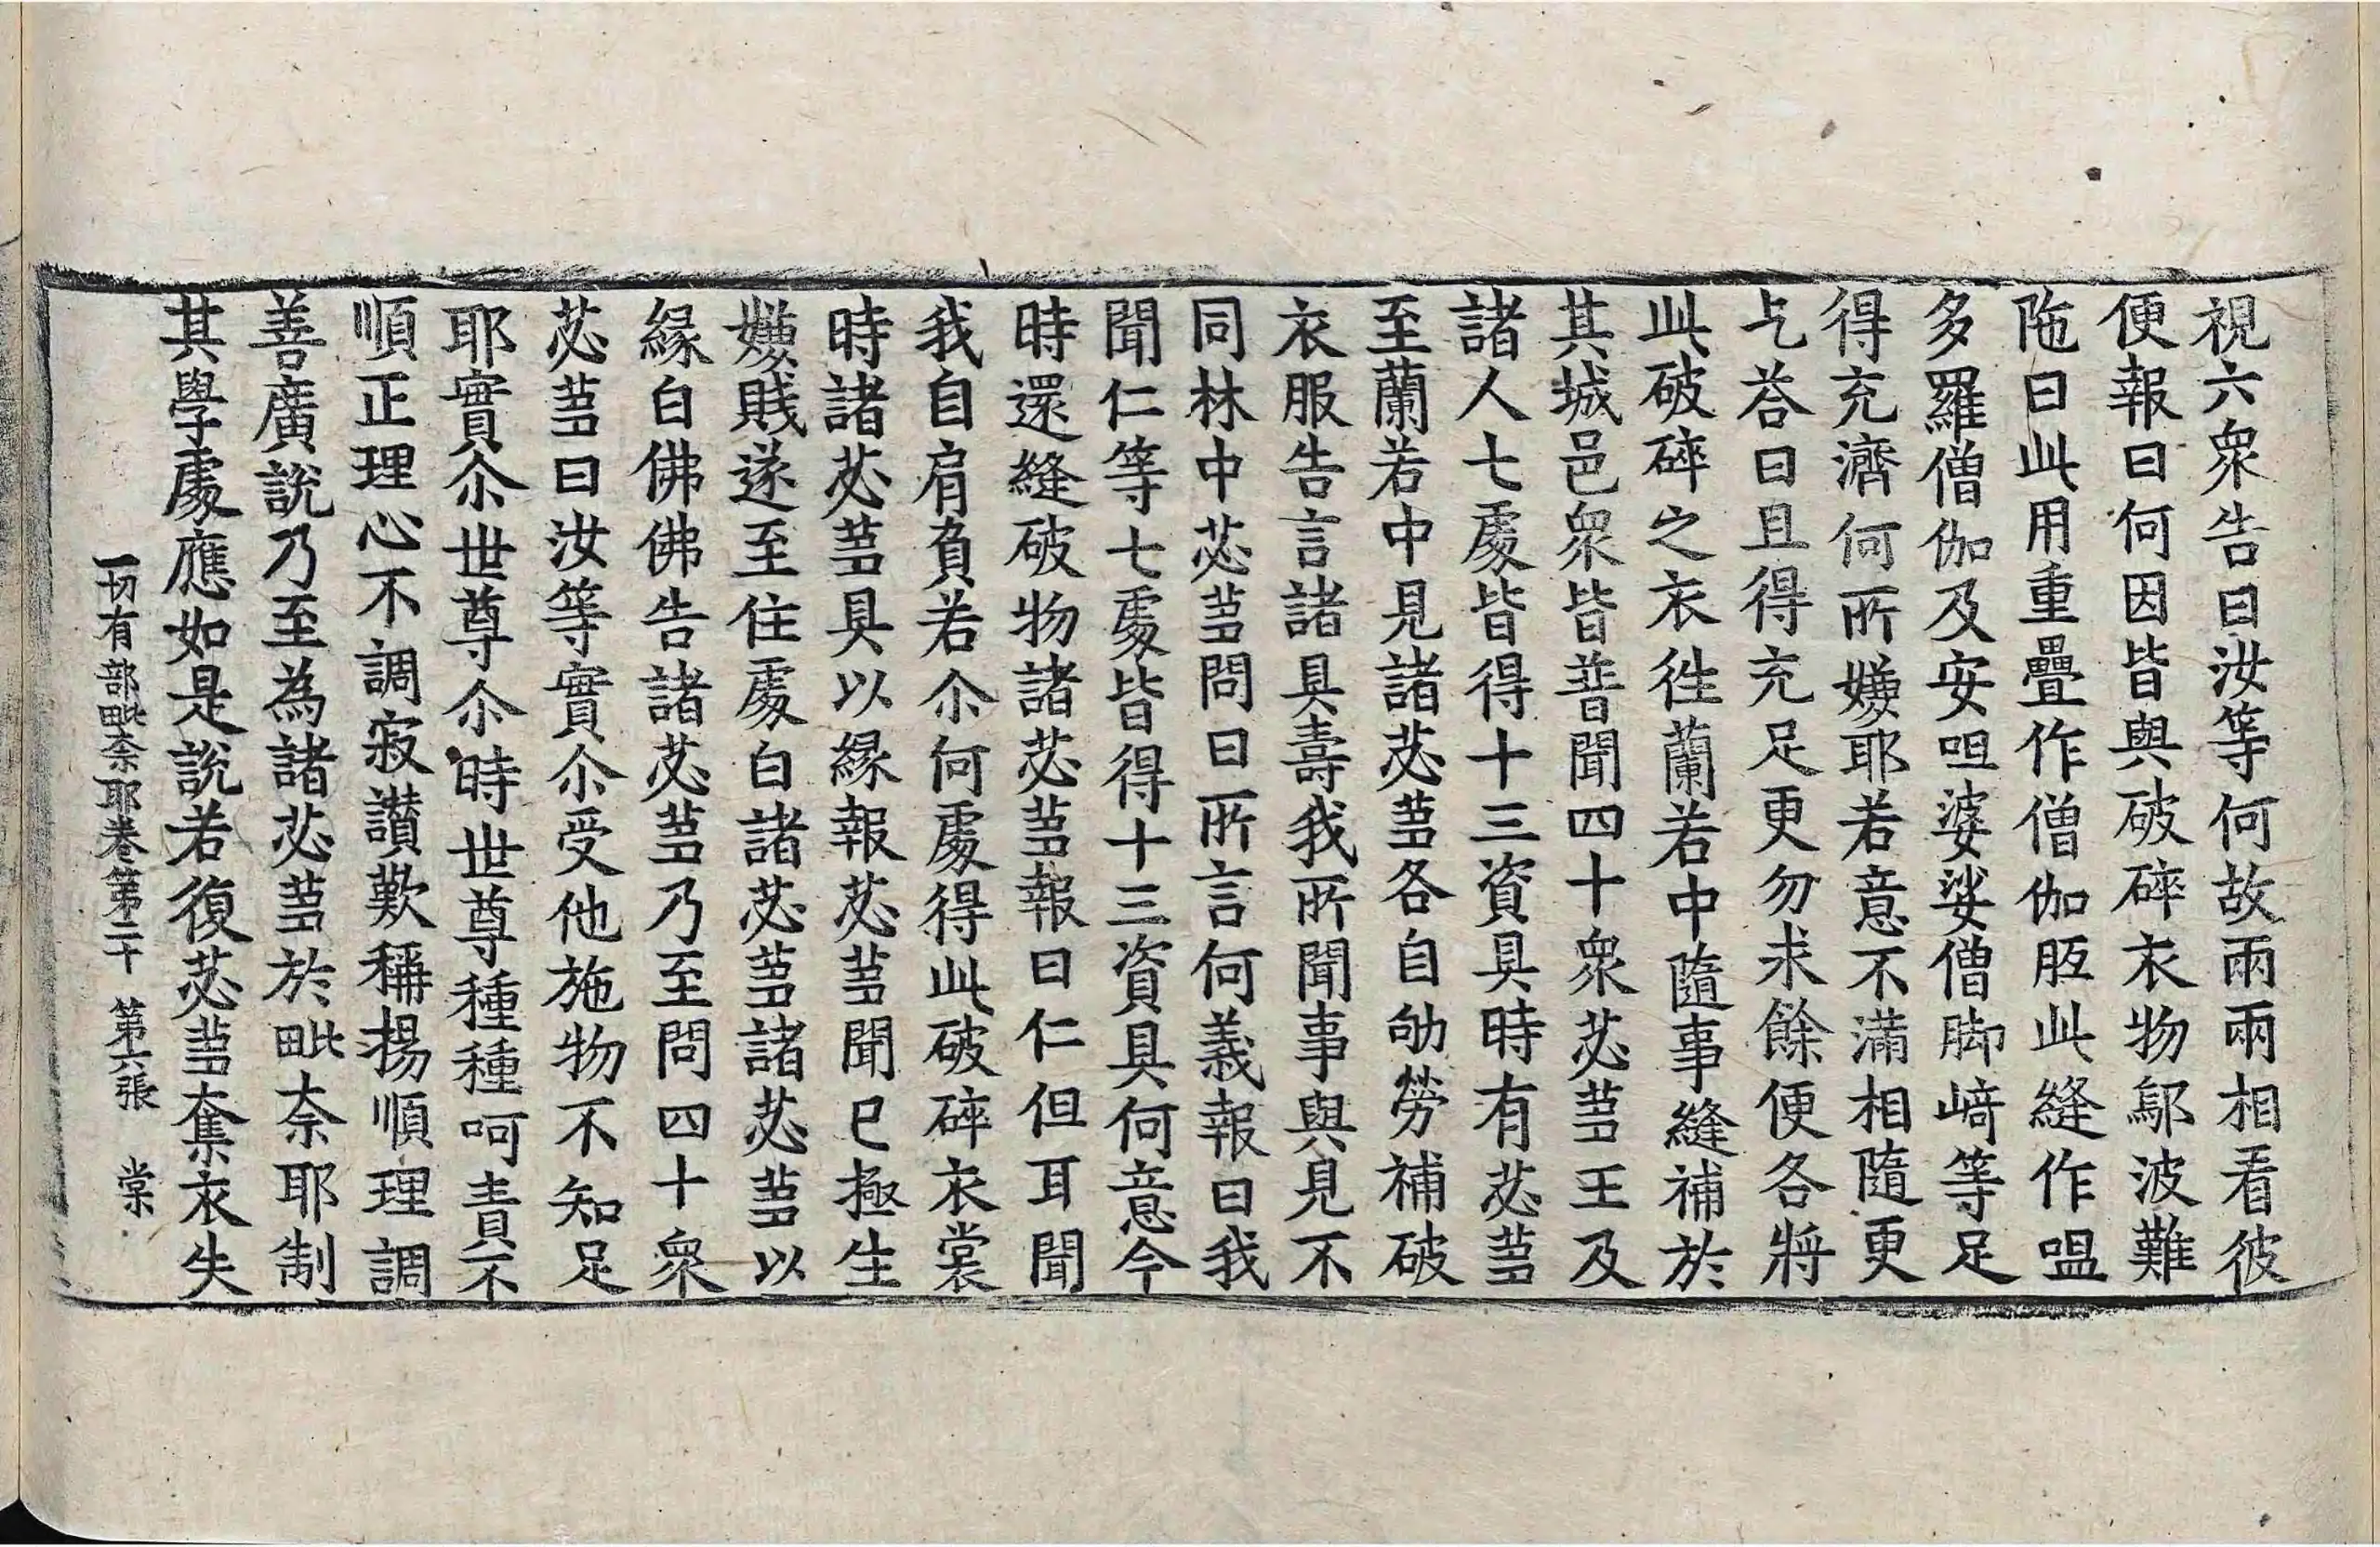 視六衆告曰汝等何故兩兩相看彼
便報曰何因皆與破碎衣物鄔波難
陁曰此用重疊作僧伽胝此縫作嗢
多羅僧伽及安呾婆娑僧脚崎等足
得充濟何所嫌耶若意不滿相隨更
乞荅曰且得充足更勿求餘便各將
此破碎之衣徃蘭若中隨事縫補於
其城邑衆皆普聞四十衆苾蒭王及
諸人七處皆得十三資具時有苾蒭
至蘭若中見諸苾蒭各自劬勞補破
衣服告言諸具壽我所聞事與見不
同林中苾蒭問曰所言何義報曰我
聞仁等七處皆得十三資具何意今
時還縫破物諸苾蒭報曰仁但耳聞
我自肩負若尒何處得此破碎衣裳
時諸苾蒭具以緣報苾蒭聞已極生
嫌賤遂至住處白諸苾蒭諸苾蒭以
緣白佛佛告諸苾蒭乃至問四十衆
苾蒭曰汝等實尒受他施物不知足
耶實尒世尊尒時世尊種種呵責不
順正理心不調寂讃歎稱揚順理調
善廣說乃至為諸苾蒭於毗奈耶制
其學處應如是說若復苾蒭奪衣失
一切有部毗奈耶卷第二十 第六張 棠